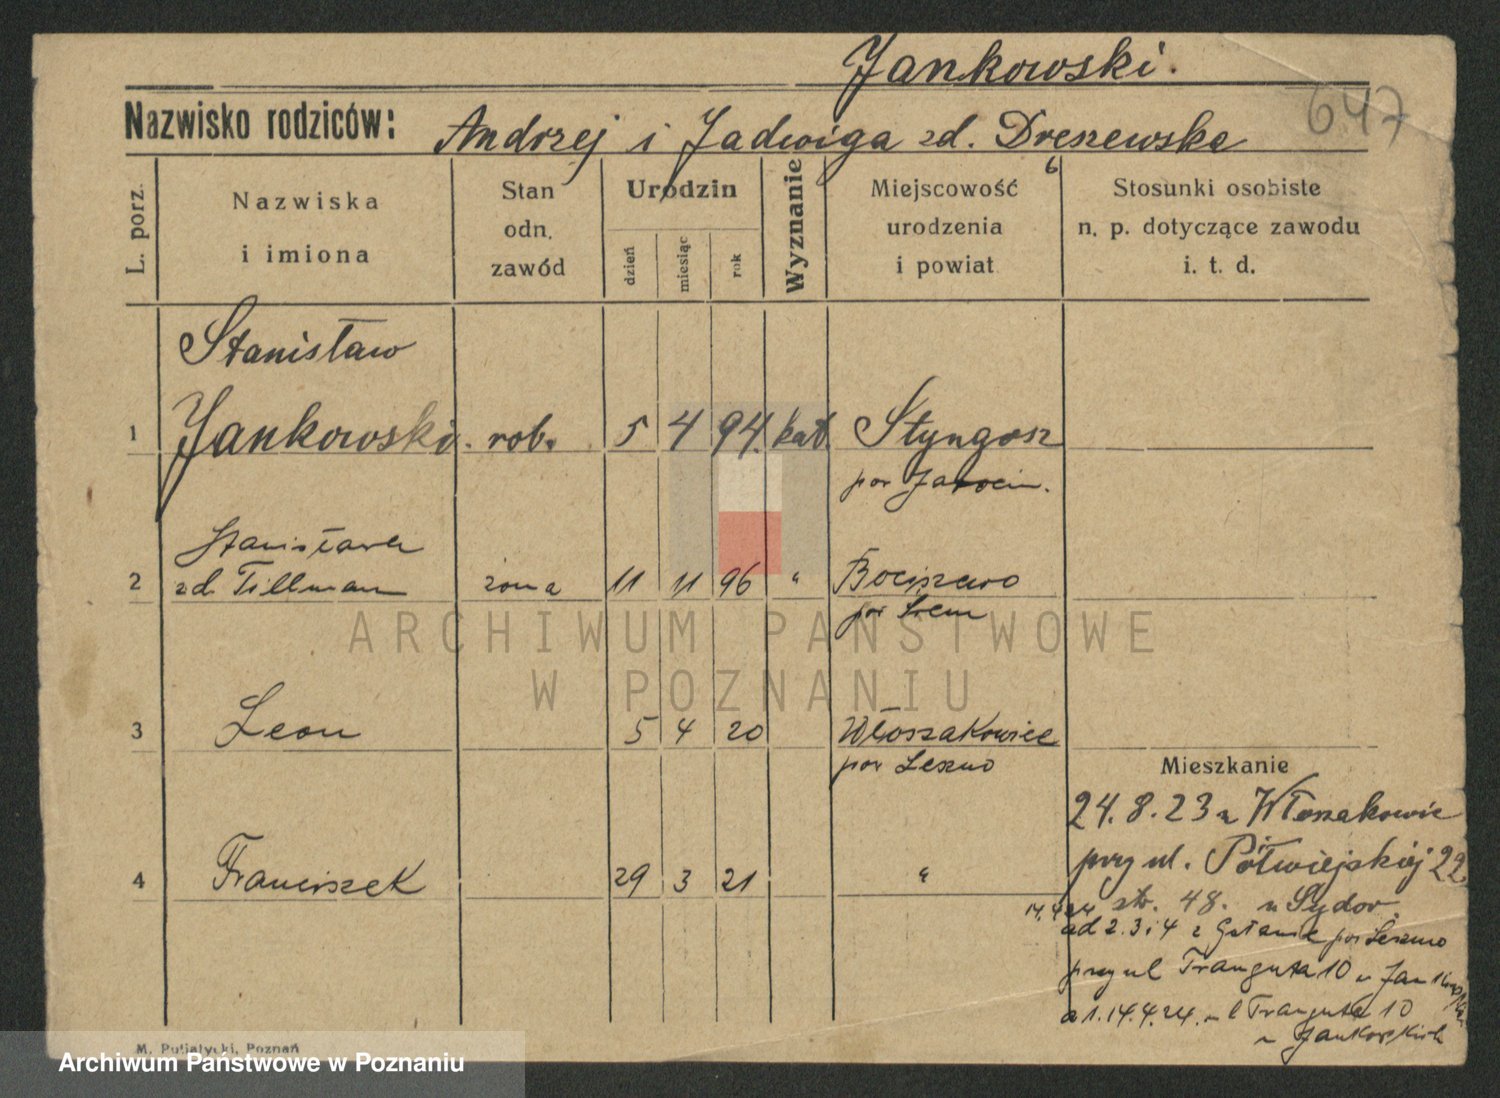 Jankowski.
647
Nazwisko rodziców: Andrzej i Jadwiga zd. Dreszewska
6
L. porz.
Nazwiska i imiona
Stan odn. zawód
Urodzin
dzień
miesiąc
rok
Wyznanie
Miejscowość urodzenia i powiat
Stosunki osobiste n. p. dotyczące zawodu i. t. d.
Stanisław
1 Jankowski. rob. 5 4 94. kat. Styngosz
pow Jarocin.
Stanisława
2 zd Tillman żona 11 11 96 " Bociszewo
pow Śrem
3 Leon 5 4 20 Włoszakowice
pow Leszno
Mieszkanie
24.8.23 z Włoszakowic
przy ul. Półwiejskiej 22.
4 Franciszek 29 3 21 "
str. 48. u Sydor.
14.4.24
ad 2.3 i 4 z pow Leszno
przy ul Trauguta 10 u
a 1. 14.4.24. Trauguta 10
u Jankowskich
M. Putiatycki, Poznań
ARCHIWUM PAŃSTWOWE
W POZNANIU
Archiwum Państwowe w Poznaniu